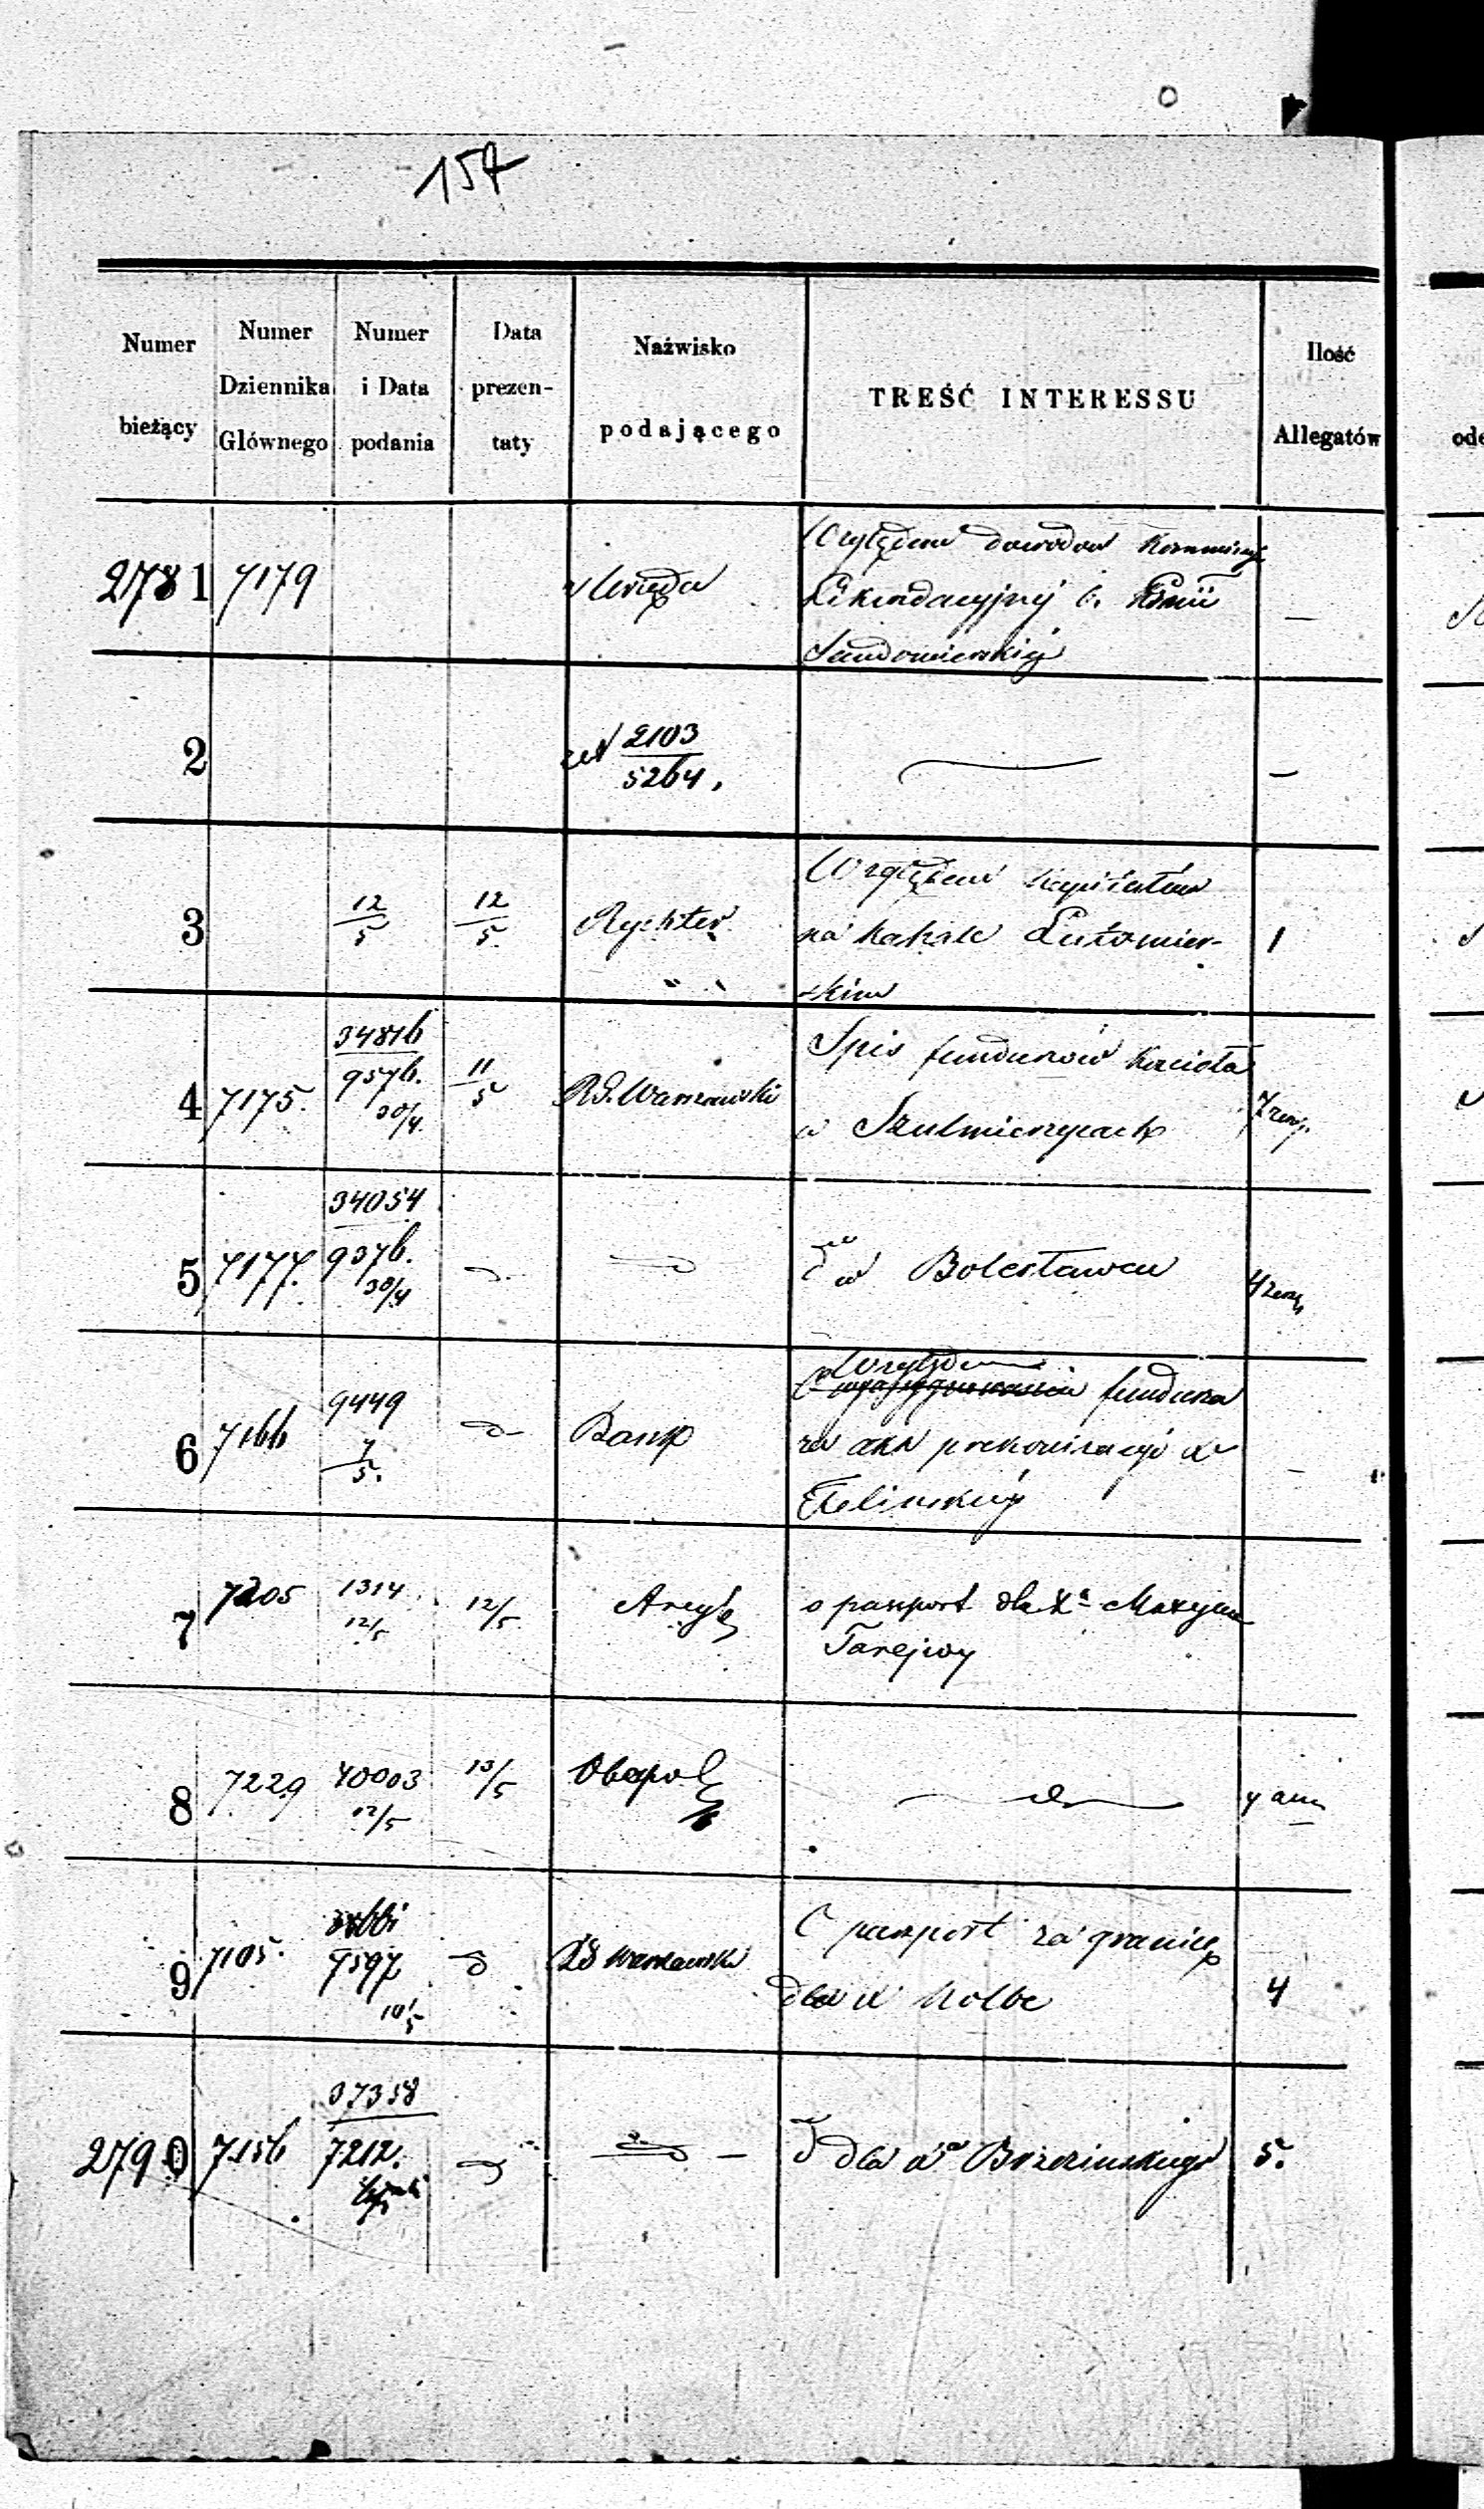 157
Numer bieżący
Numer Dziennika Głównego
Numer i Data podania
Data prezentaty
Nazwisko podającego
TREŚĆ INTERESSU
Ilość Allegatów
2781 7179 z Urzędu Względem dowodów Kommissyi
Likwidacyjnéj b.
Sandomierskiéj —
2 2103
5264. —
3 12/5 12/5 Rychter Względem kapitałów
na kahale Lutomier-
skim 1
4 7175. 34816
9576.
30/4. 11/5 R.G. Warszawski Spis funduszów kościoła
w Szulmierzycach
5 7177. 34054
9376.
30/4 d w Bolesławcu
6 7166 9449
7/5. Bank Względem funduszu
na prekonizacyi X
Felińskiéj —
7 7205 1314
12/5 12/5 Arcyb o paszport dla Xa Maxyma
Tarejwy
8 7229 40003
12/5 13/5
9 7105. 9597
10/5 R.G. Warszawski O paszport za granicę
dla X Kolbe 4
2790 7156 37358
7212. d dla Xa Brzezińskiego 5.